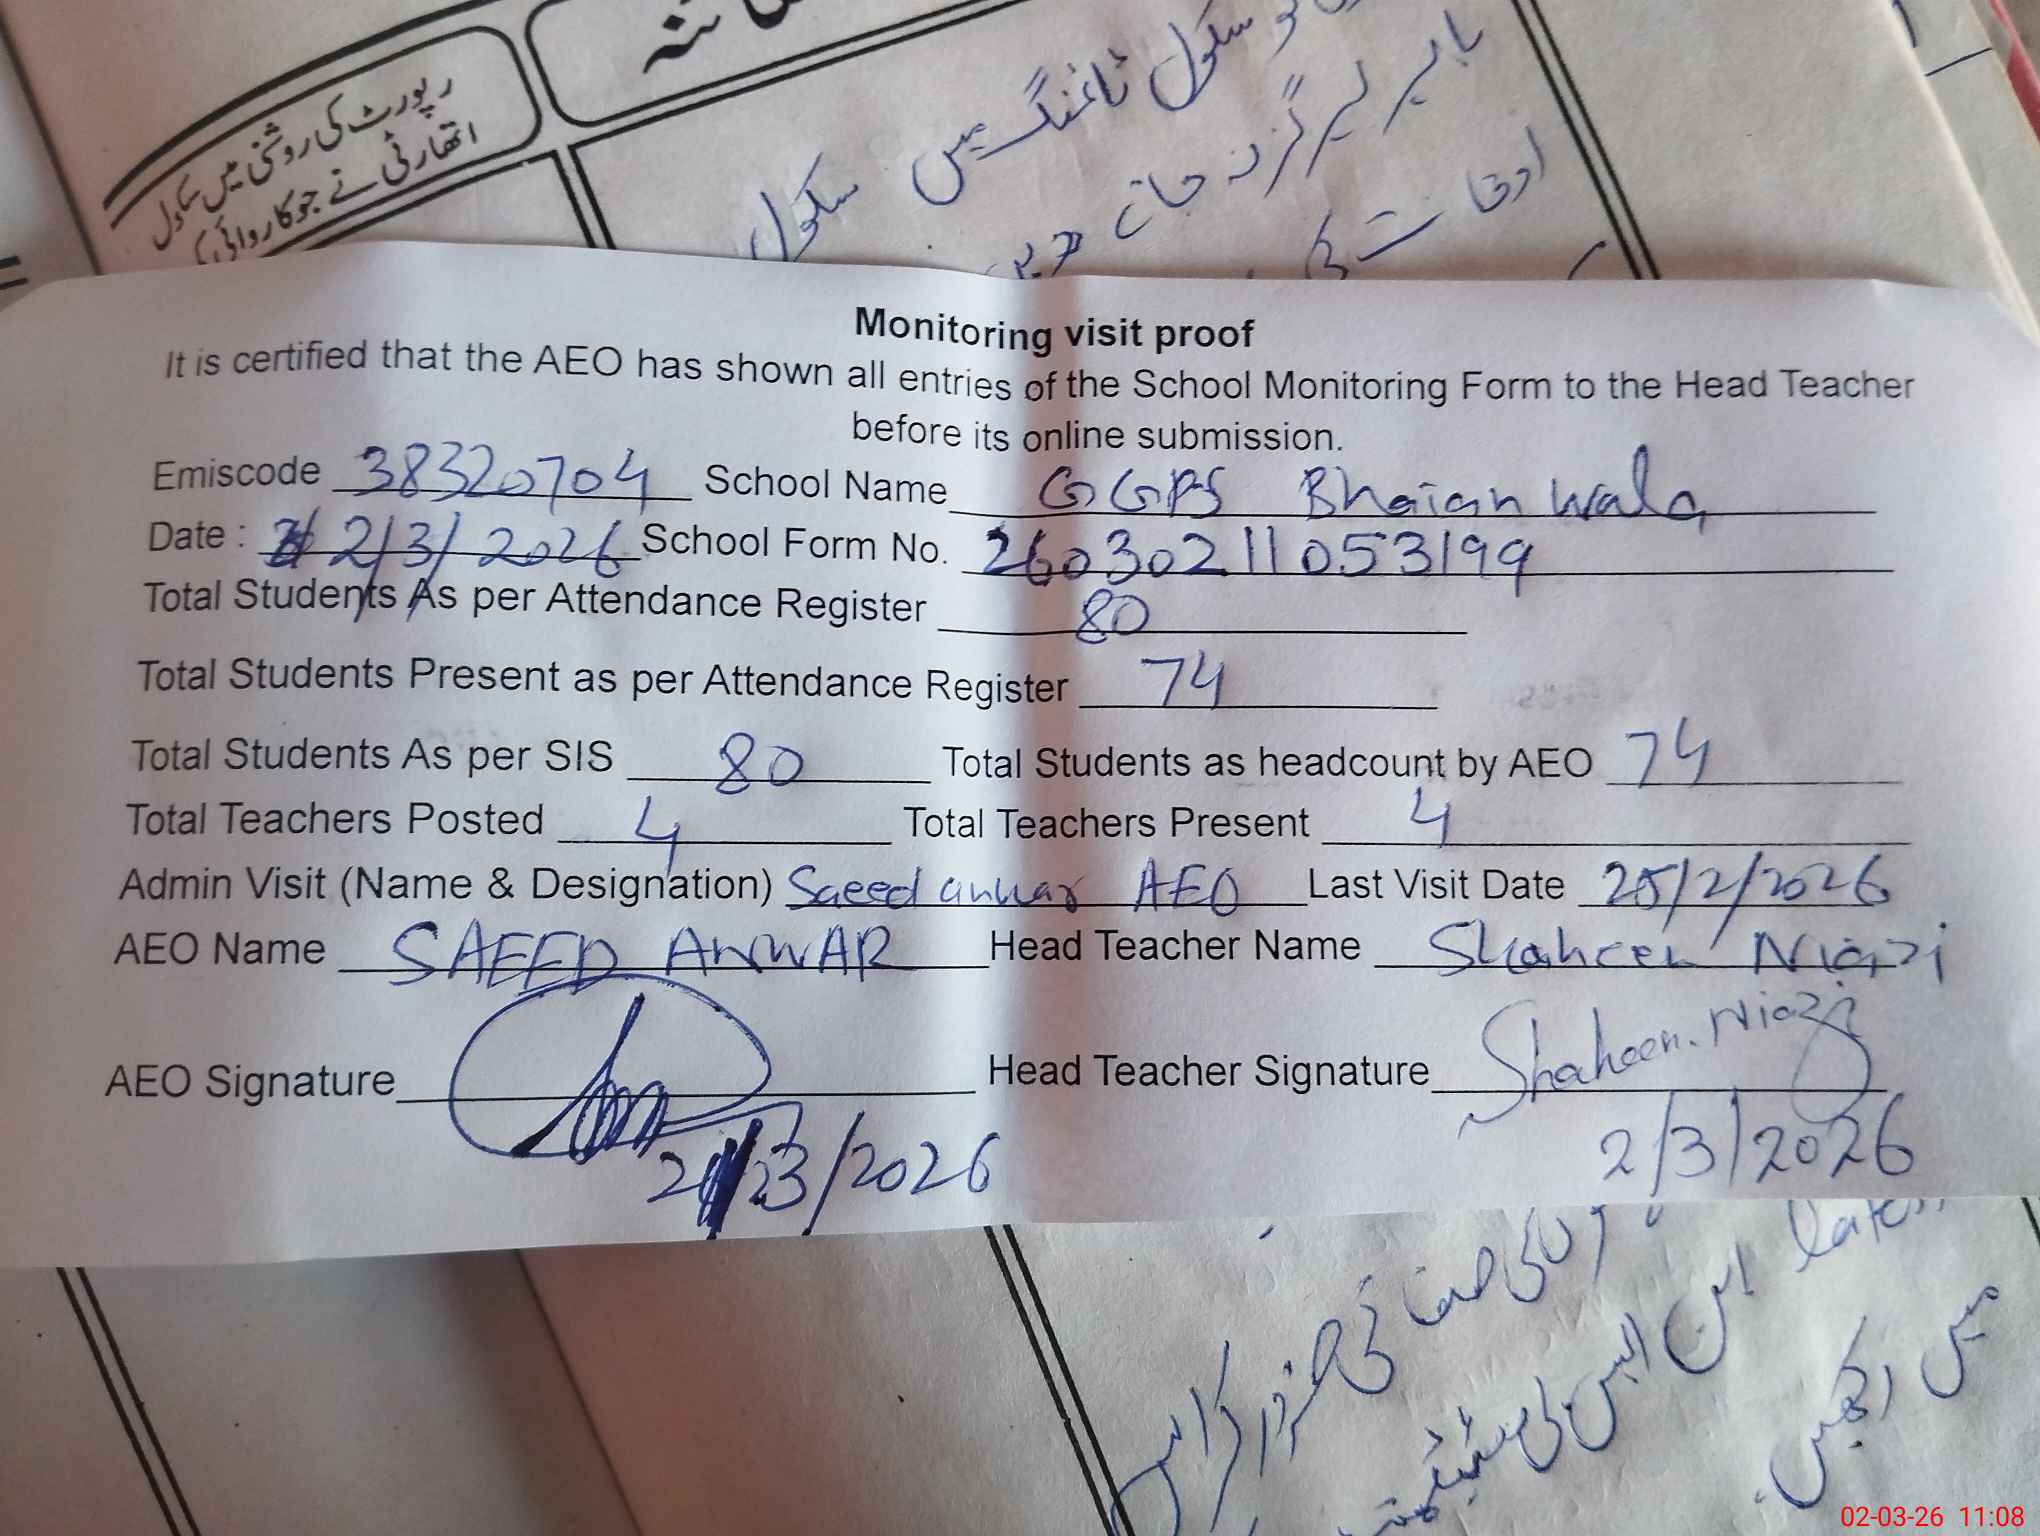 رپورٹ کی روشنی میں سکول
اتھارٹی نے جو کاروائی کی
سکول ٹائمنگ میں سکول
باہر ہرگز نہ جانے دیں
اوقات
Monitoring visit proof
It is certified that the AEO has shown all entries of the School Monitoring Form to the Head Teacher
before its online submission.
Emiscode 38320704 School Name GGPS Bhaian wala
Date : 2/3/2026 School Form No. 26030211053199
Total Students As per Attendance Register 80
Total Students Present as per Attendance Register 74
Total Students As per SIS 80 Total Students as headcount by AEO 74
Total Teachers Posted 4 Total Teachers Present 4
Admin Visit (Name & Designation) Saeed anwar AEO Last Visit Date 25/2/2026
AEO Name SAEED ANWAR Head Teacher Name Shaheen Niazi
AEO Signature Head Teacher Signature Shaheen. Niazi
2/3/2026 2/3/2026
کی صفائی ضرور کرائیں
میں رکھیں
02-03-26 11:08